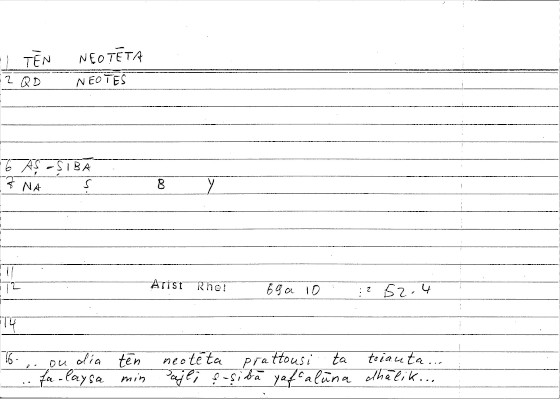 1 TĒN NEOTĒTA
2 QD NEOTES
6 AṢ-ṢIBĀ
7 NA Ṣ B Y
11
12 Arist Rhet 69a 10 :² 52.4
14
16. .. ou dia tēn neotēta prattousi ta toiauta...
.. fa-laysa min ʾajli ṣ-ṣibā yafʿalūna dhālik...